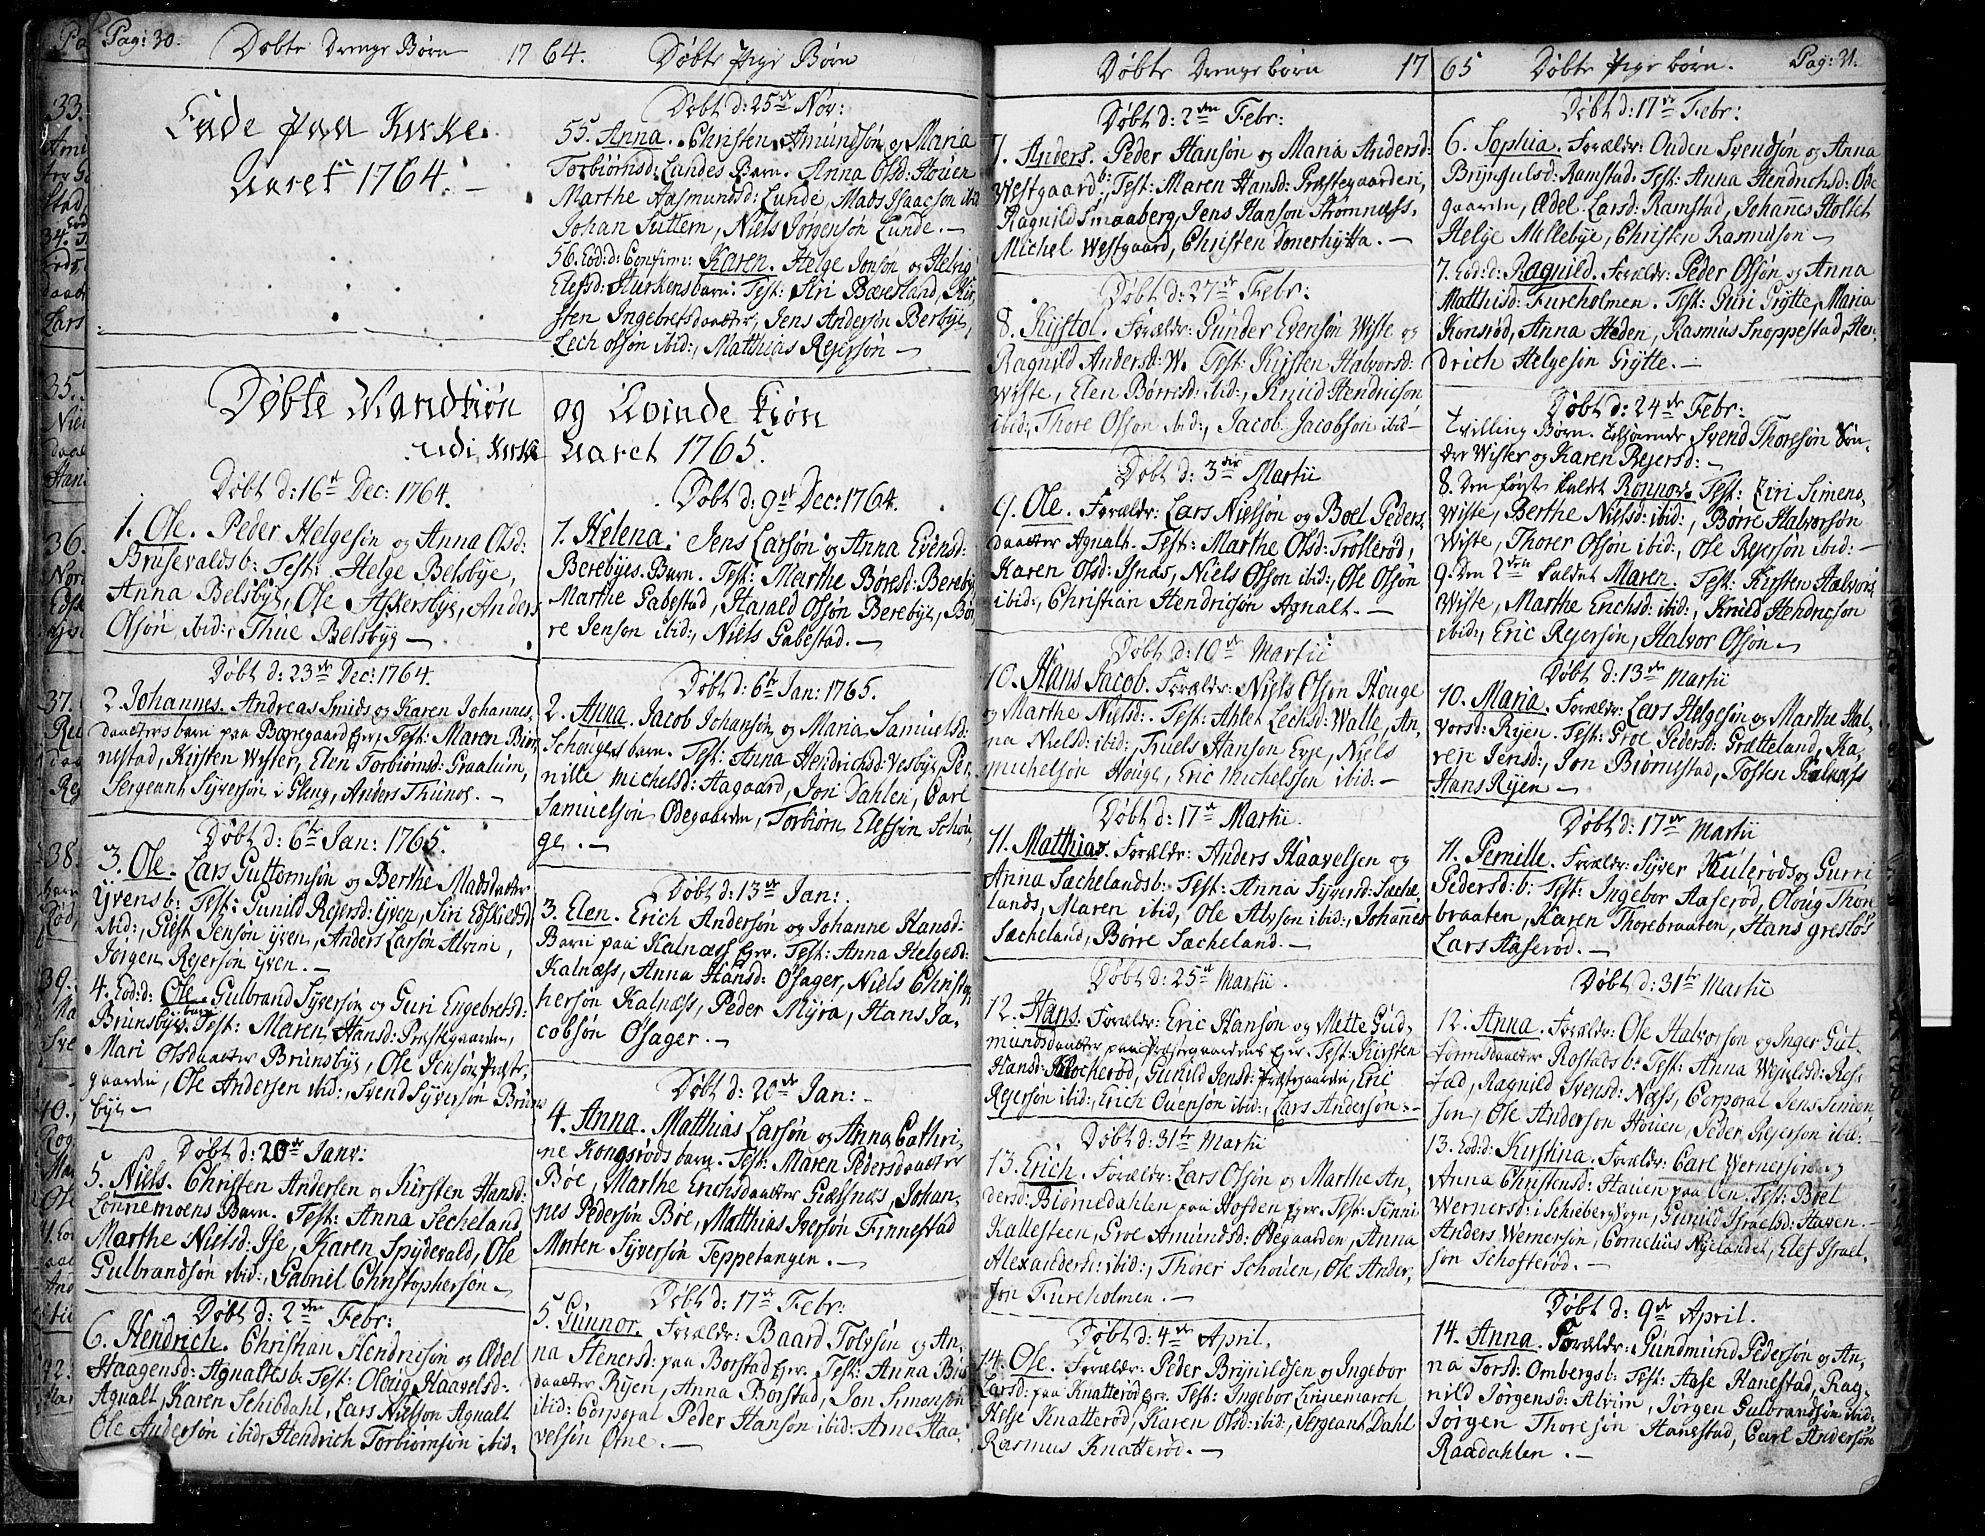 Pag: 30.
Døbte Drenge Børn 1764. Døbte Pige Børn
Ende paa Kirke
Aaret 1764. –
Døbt d: 25de Nov:
55. Anna. Christen Amundsøn og Maria
Torbiørnsd: Lundes Barn. Anna Olsd: Houen
Marthe Aasmundsd: Lunde, Mads Isaacsøn ibid
Johan Suttern, Niels Jørgensøn Lunde. –
56. Eod: d: Confirm: Karen. Helge Jonsøn og Helvig
Elefsd: Hurkens barn. Test: Siri Bæresland, Kir-
sten Ingebretsdaatter, Jens Andersøn Berbye,
Lech Olsøn ibid:, Matthias Rejersøn –
Døbte Mandkiøn og Qvinde Kiøn
udi Kirke Aaret 1765.
Døbt d: 16de Dec: 1764.
1. Ole. Peder Helgesøn og Anna Olsd:
Brusevalds b: Test: Helge Belsbye,
Anna Belsbye, Ole Askersbye, Anders
Olsøn ibid:, Thue Belsbye –
Døbt d: 23de Dec: 1764.
2. Johannes. Andreas Smids og Karen Johannes-
daatters barn paa Borregaard Ejer, Test: Maren Biør-
nestad, Kirsten Wister, Elen Torbiørnsd: Graalum,
Sergeant Syversøn i Gleng, Anders Thunoe. –
Døbt d: 6te Jan: 1765.
3. Ole. Lars Guttormsøn og Berthe Madsdatter
Yvens b: Test: Gunild Rejersd: Yven, Siri Edskildsd
ibid:, Giest Jensøn Yven, Anders Larsøn Alvim,
Jørgen Rejersøn Yven. –
4. Eod: d: Ole. Gulbrand Syversøn og Guri Engebretsd:
Brunsbyes barn Test: Maren Hansd: Præstegaarden,
Mari Olsdaatter Brunsbye, Ole Jensøn Præste-
gaarden, Ole Andersen ibid:, Svend Syversøn Bruns
bye –
Døbt d: 20de Janr:
5. Niels. Christen Andersen og Kirsten Hansd:
Lønnemoens Barn. Test: Anna Secheland
Marthe Nielsd: Ise, Karen Spydevald, Ole
Gulbrandsøn ibid:, Gabriel Christophersøn –
Døbt d: 2den Febr:
6. Hendrich. Christian Hendricsøn og Ædel
Haagensd: Agnaltes b: Test: Oloug Haavelsd:
Agnalt, Karen Schibdahl, Lars Nielsøn Agnalt
Ole Andersøn ibid, Hendrich Torbiørnsøn ibid.
Døbt d: 9de Dec: 1764.
1. Helena. Jens Larsøn og Anna Evensd:
Berebyes Barn. Test: Marthe Børesd: Bereby
Marthe Gabestad, Harald Olsøn Berebye, Bør-
re Jensøn ibid:, Niels Gabestad. –
Døbt d: 6te Jan: 1765.
2. Anna. Jacob Johansøn og Maria Samuelsd:
Schouges barn. Test: Anna Hendrichsd: Vesbye, Per-
nille Michelsd: Hagaard, Jon Dahlen, Carl
Samuelsøn Ødegaarden, Torbiørn Elefsøn Schou-
ge. –
Døbt d: 13de Jan:
3. Elen. Erich Andersøn og Johanne Hansd:
Barn paa Kalnæss Ejer. Test: Anna Helgesd:
Kalnæss, Anna Hansd: Osager, Niels Christop-
hersøn Kalnæss, Peder Myra, Hans Ja-
cobsøn Osager. –
Døbt d: 20de Jan: –
4. Anna. Matthias Larsøn og Anna Cathri-
ne Kongsrøds barn. Test: Maren Pedersdaatter
Bøe, Marthe Erichsdaatter Gielsnes, Johan-
nes Pedersøn Bøe, Matthias Iversøn Finnestad
Morten Syversøn Teppetangen. –
Døbt d: 17de Febr:
5. Gunnor. Forældr: Baard Tolvsøn og An-
na Stenersd: paa Borstad Ejer. Test: Anna
daatter Ryen, Anna Borstad, Jon Simonsøn
ibid: Corporal Peder Hansøn ibid: Arne Haa-
velsøn Orne. –
Døbte Drenge børn 1765 Døbte Pige børn. Pag: 31.
Døbt d: 2den Febr:
7. Anders. Peder Hansøn og Maria Andersd:
Westgaard b: Test: Maren Hansd: Præstegaarden,
Ragnild Smaaberg, Jens Hansøn Strømness,
Michel Westgaard, Christen Donerhytta. –
Døbt d: 27de Febr:
8. Kystol. Forældr: Gunder Evensøn Wiste og
Ragnild Andersd: W. Test: Kirsten Halvorsd:
Wiste, Elen Børresd: ibid:, Knud Hendricsøn
ibid:, Thore Olsøn ibid:, Jacob Jacobsøn ibid –
Døbt d: 3die Martii
9. Ole. Forældr: Lars Nielsøn og Boel Peders
daatter Agnalt. Test: Marthe Olsd: Trollerød,
Karen Olsd: Isnas, Niels Olsøn ibid:, Ole Olsøn
ibid:, Christian Hendricsøn Agnalt. –
Døbt d: 10de Martii
10. Hans Jacob. Forældr: Niels Olsøn Houge
og Marthe Nielsd:. Test: Ahlet Lechsd: Walle, An-
na Nielsd: ibid:, Truels Hansøn Evje, Niels
Michelsøn Houge, Eric Michelssen ibid: –
Døbt d: 17de Martii.
11. Matthias. Forældr: Anders Haavelsen og
Anna Sachelands b: Test: Anna Syversd: Sache-
lands, Maren ibid, Ole Alvson ibid:, Johannes
Sacheland, Børre Sacheland. –
Døbt d: 25de Martii.
12. Hans. Forældr: Eric Hansøn og Mette Gud-
mundsdaatter paa Præstegaardens Ejer. Test: Kirsten
Hansd: Klocherød, Gunild Jensd: Præstegaarden, Eric
Rejersøn ibid:, Erich Ouensøn ibid:, Lars Andersøn: –
Døbt d: 31te Martii
13. Erich. Forældr: Lars Olsøn og Marthe An-
dersd: Biørnedahlen paa Hofden Ejer. Test: Sinni
Kallesteen, Groe Amundsd: Ødegaarden, Anna
Alexandersd: ibid:, Thorer Schouen, Ole Ander-
søn Fureholmen. –
Døbt d: 4de April.
14. Ole. Forældr: Peder Brynildsen og Ingebor
Larsd: paa Knatterød Ejer. Test: Ingebor Linnemarch
Helje Knatterød, Karen Olsd: ibid:, Sergeant Dahl
Rasmus Knatterød. –
Døbt d: 17de Febr:
6. Sophia. Forældr: Ouden Svendsøn og Anna
Brynjulsd: Ramstad. Test: Anna Hendrichsd: Øde
gaarden, Ædel Larsd: Ramstad, Johannes Holtet
Helje Millebye, Christen Rasmusøn –
7. Eod: d: Ragnild. Forældr: Peder Olsøn og Anna
Matthisd: Fureholmen. Test: Guri Grytte, Maria
Konsrød, Anna Heden, Rasmus Snoppestad, Hen-
drich Helgesøn Grytte. –
Døbt d: 24de Febr:
Tvilling Børn. Svend Thoresøn Søn-
dre Wister og Karen Rejersd: –
8. Den første kaldet Ronnov. Test: Ziri Simens
Wiste, Berthe Nielsd: ibid:, Børre Halvorsøn
Wiste, Thorer Olsøn ibid:, Ole Rejersøn ibid: –
9. Den 2den kaldet Maren. Test: Kirsten Halvors
Wiste, Marthe Erichsd: ibid:, Knud Hendricsøn
ibid:, Eric Rejersøn, Halvor Olsøn –
Døbt d: 13de Martii
10. Maria. Forældr: Lars Helgesøn og Marthe Hal-
vorsd: Ryen. Test: Groe Pedersd: Gratteland, Ka-
ren Jensd:, Jon Biørnestad, Tosten Kalnæss
Hans Ryen –
Døbt d: 17de Martii
11. Pernille. Forældr: Syver Kulerøds og Gurri
Pedersd: b: Test: Ingebor Aaserød, Oloug Thore
braaten, Karen Thorebraaten, Hans Gresløs
Lars Aaserød. –
Døbt d: 31te Martii
12. Anna. Forældr: Ole Halvorsøn og Inger Gut-
tormsdaatter Rostads b: Test: Anna Ros-
tad, Ragnild Svensd: Næss, Corporal Jens Simon
søn, Ole Andersøn Houen, Peder Rejersøn ibid:
13. Eod: d: Kirstina. Forældr: Carl Wernersøn og
Anna Christensd: Hauen paa Øen. Test: Boel
Wernersd: i Schieberg Sogn, Gunild Israelsd: Haven.
Anders Wernersøn, Cornelius Nyelandet, Elef Israel-
søn Schofterød. –
Døbt d: 9de April.
14. Anna. Forældr: Gundmund Pedersøn og An-
na Torsd: Ombergs b: Test: Aase Hanestad, Rag-
nild Jørgensd: Alvim, Jørgen Gulbrandsøn ibid:
Jørgen Thoresøn Hanestad, Carl Andersøn
Raadahlen. –